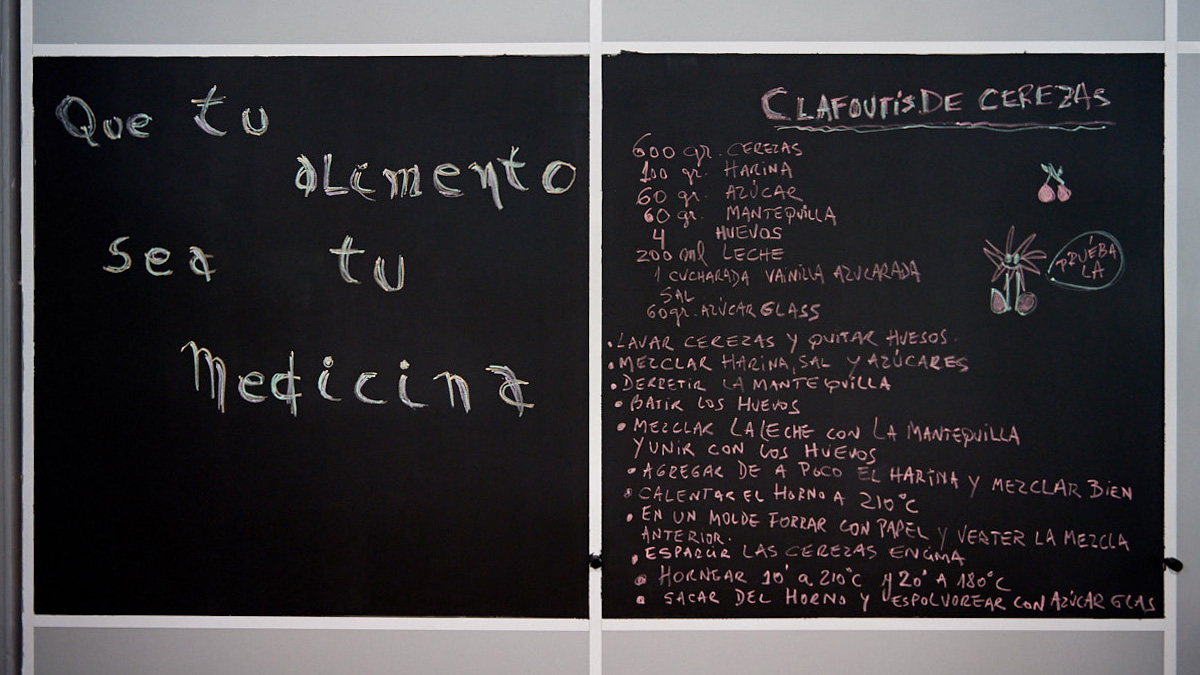 Que tu
alimento
sea tu
Medicina
CLAFOUTIS DE CEREZAS
600 gr. CEREZAS
100 gr. HARINA
60 gr. AZÚCAR
60 gr. MANTEQUILLA
4 HUEVOS
200 ml LECHE
1 CUCHARADA VAINILLA AZUCARADA
SAL
60gr. AZÚCAR GLASS
PRUÉBA
LA
• LAVAR CEREZAS Y QUITAR HUESOS.
• MEZCLAR HARINA, SAL Y AZÚCARES
• DERRETIR LA MANTEQUILLA
• BATIR LOS HUEVOS
• MEZCLAR LA LECHE CON LA MANTEQUILLA
Y UNIR CON LOS HUEVOS
• AGREGAR DE A POCO EL HARINA Y MEZCLAR BIEN
• CALENTAR EL HORNO A 210°C
• EN UN MOLDE FORRAR CON PAPEL Y VERTER LA MEZCLA
ANTERIOR.
• ESPARCIR LAS CEREZAS ENCIMA
• HORNEAR 10' a 210°C Y 20' A 180°C
• SACAR DEL HORNO Y ESPOLVOREAR CON AZÚCAR GLAS